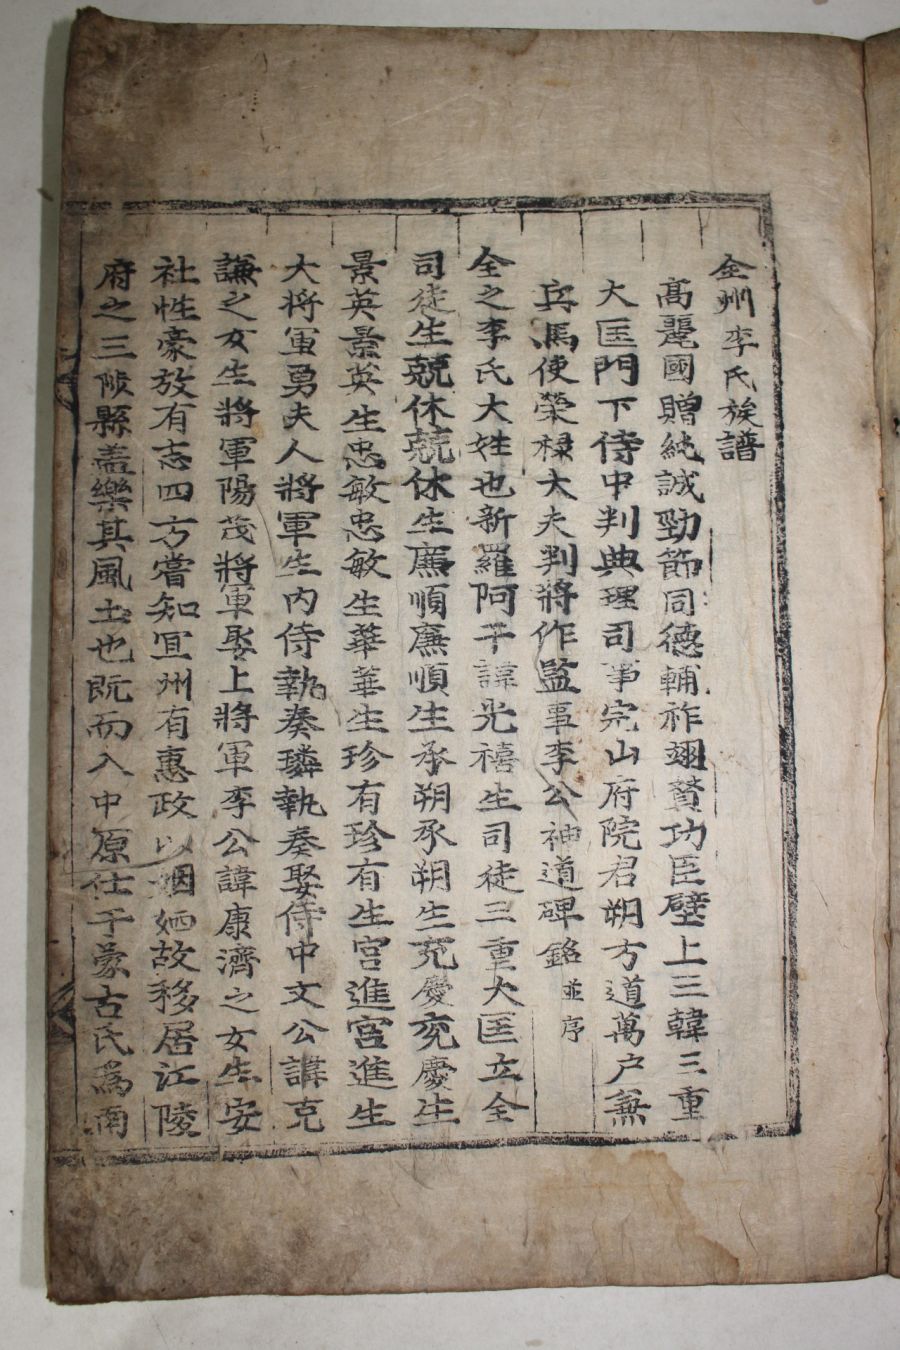 全州李氏族譜
高麗國贈純誠勁節同德輔祚翊贊功臣壁上三韓三重
大匡門下侍中判典理司事完山府院君朔方道萬户兼
兵馬使榮祿大夫判將作監事李公神道碑銘並序
全之李氏大姓也新羅阿干諱光禧生司徒三重大匡立全
司徒生兢休兢休生廉順廉順生承朔承朔生充慶充慶生
景英景英生忠敏忠敏生華華生珍有珍有生宮進宮進生
大將軍勇夫人將軍生内侍執奏璘執奏娶侍中文公諱克
謙之女生將軍陽茂將軍娶上將軍李公諱康濟之女生安
社性豪放有志四方嘗知宜州有惠政以姻婭故移居江陵
府之三陟縣盖樂其風土也既而入中原仕于蒙古氏爲南